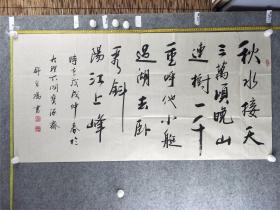 秋水接天
三萬頃晚山
連樹一千
重呼他小艇
過湖去卧
看斜
陽江上峰
時在戊戌仲春於
大理下關
書